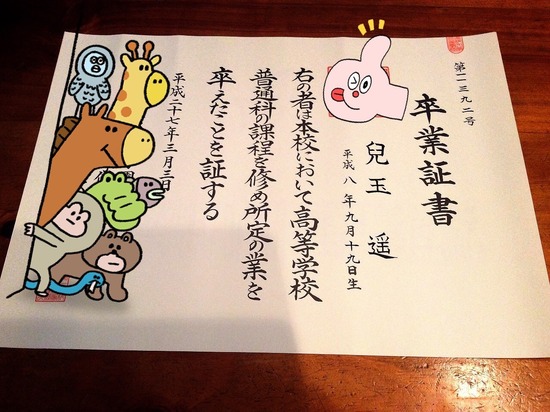 第一一三九二号
卒業証書
兒玉 遥
平成八年九月十九日生
右の者は本校において高等学校
普通科の課程を修め所定の業を
卒えたことを証する
平成二十七年三月三日